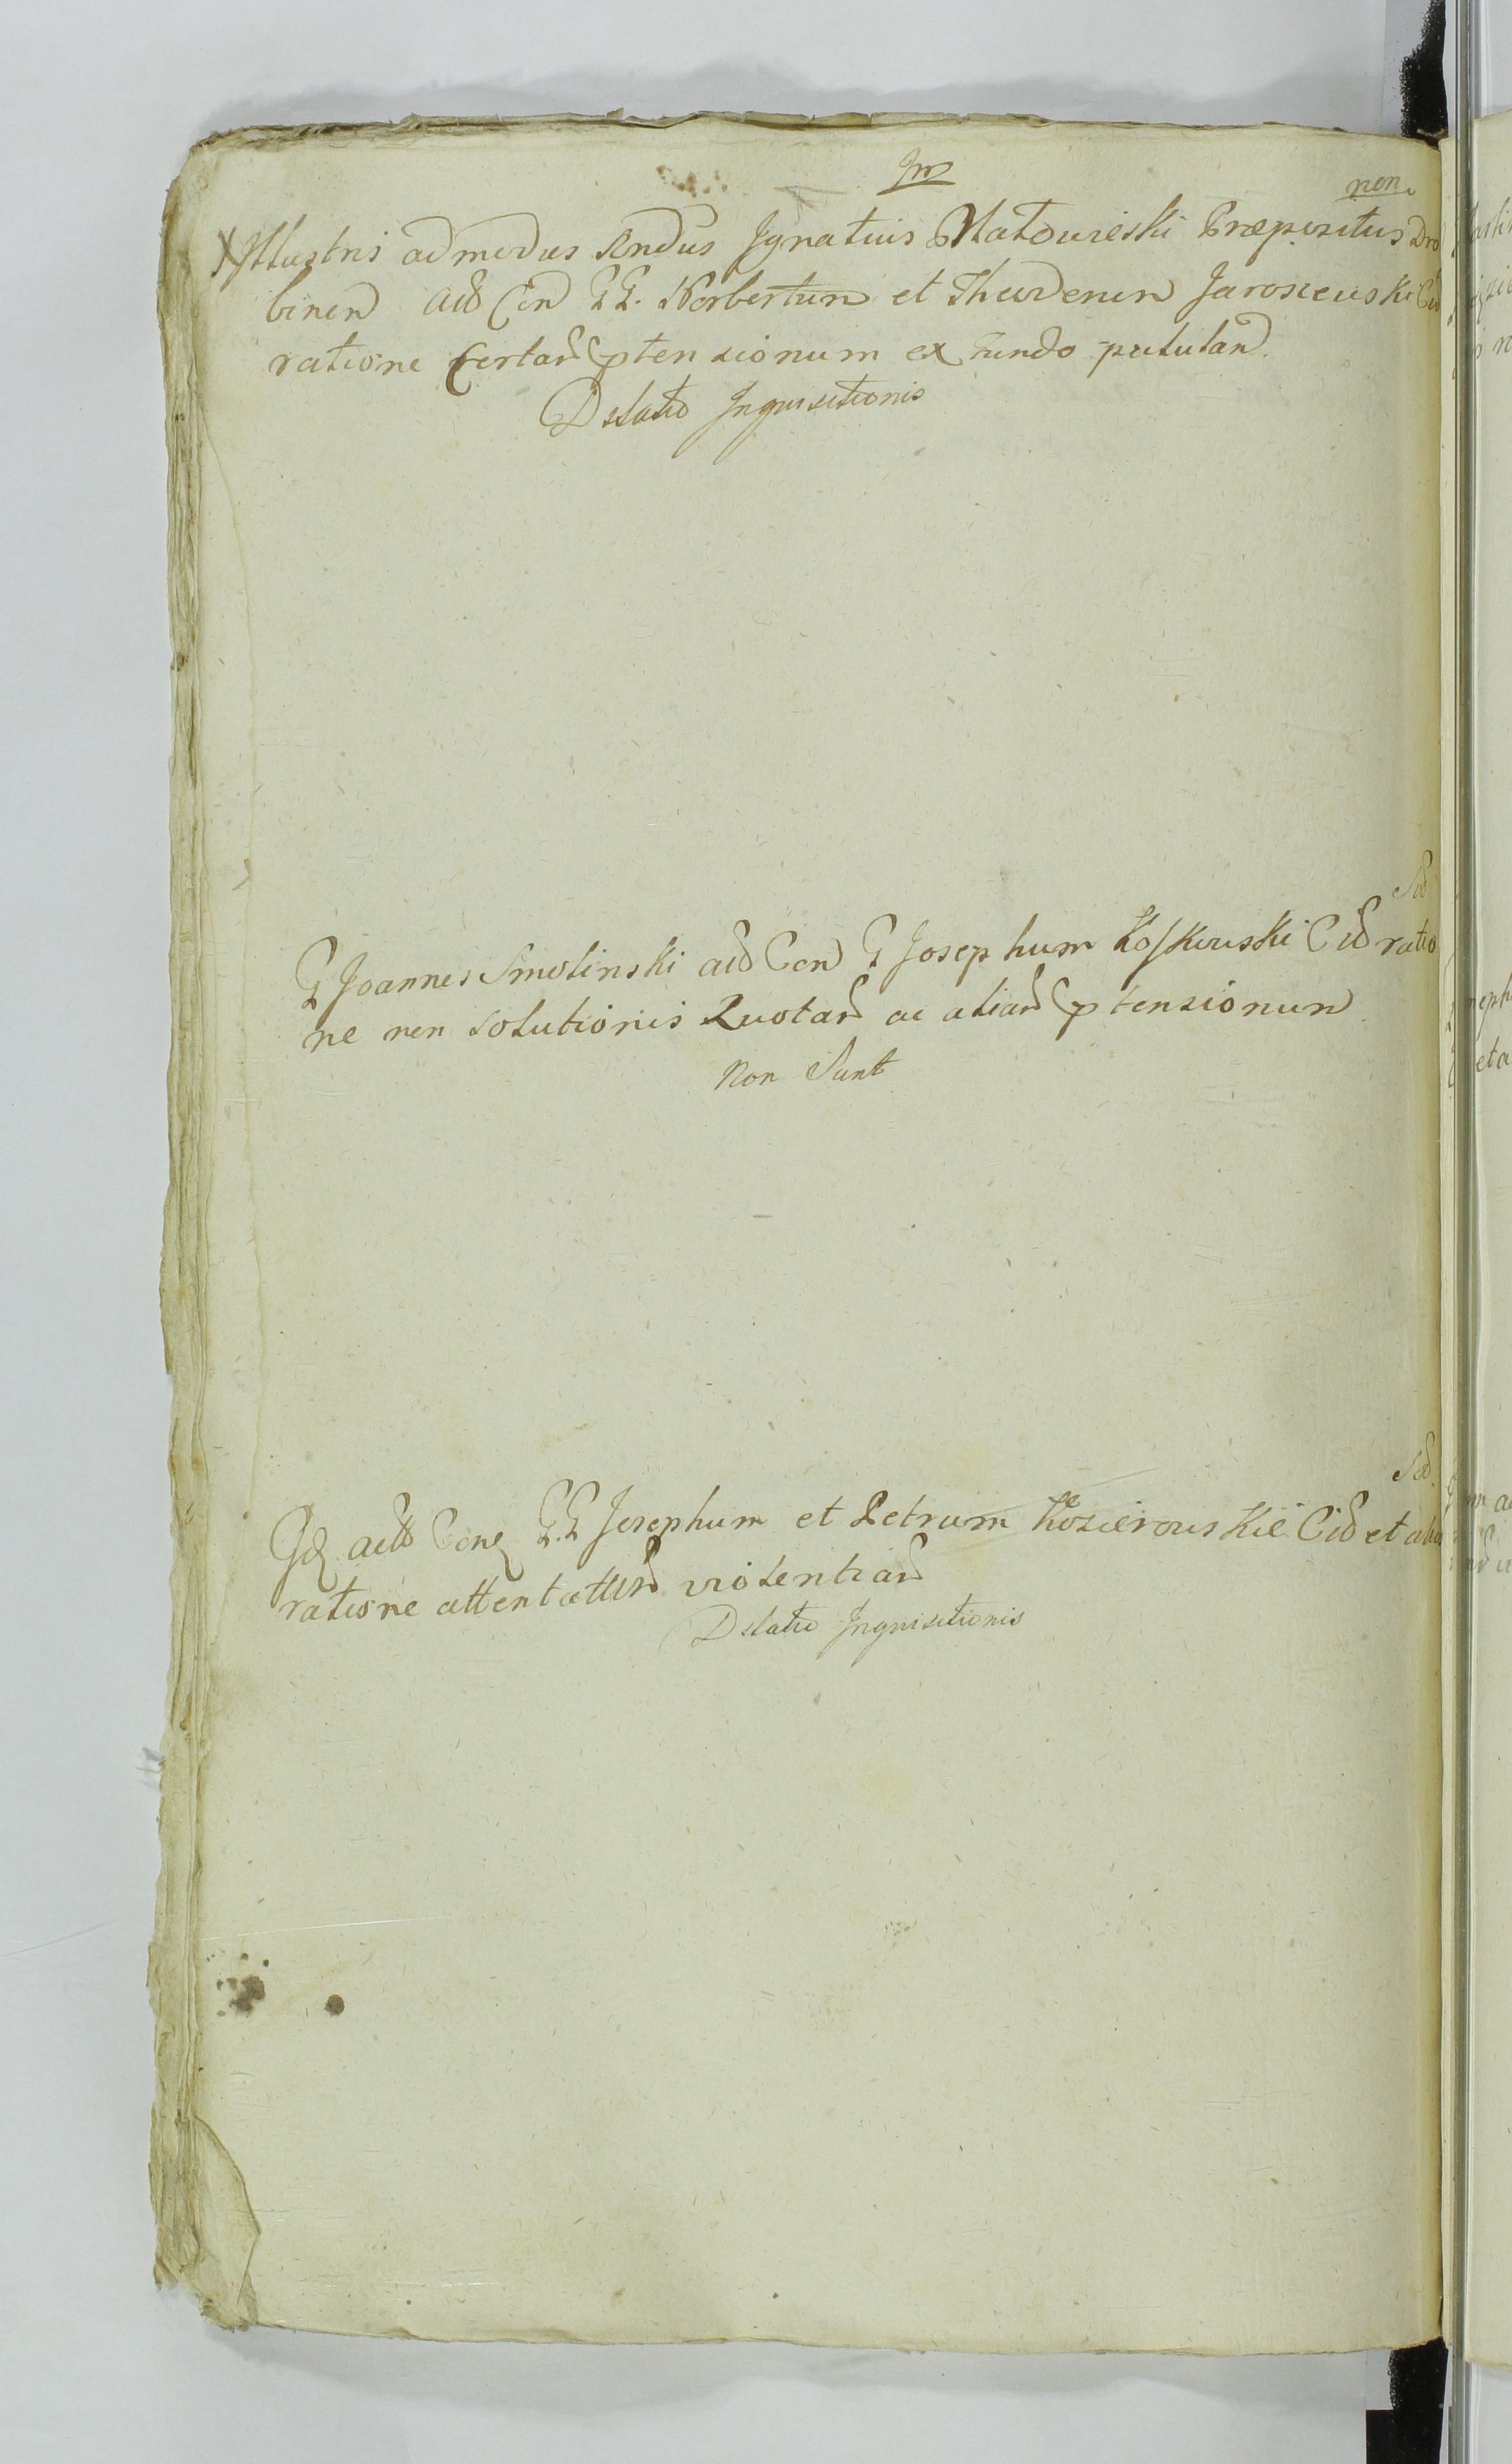 Jm
non
Jllustris admodus Rndus Jgnatius Matowieski Præpositus Dro
binen adv Con GG. Norbertum et Theodorum Jarosiewski Civ
ratione certar ptensionum ex fundo pullulan.
Delatio Jnquisitionis
Sd
G Joannes Smolinski adv Con G Josephum Koskowski Civ ratio
ne non solutionis Quotar ac aliar ptensionum
Non Sunt
Sd.
Jd adv Con G.G Josephum et Petrum Kozierowskie Civ et alios
ratione attentattar violentiar
Delatio Jnquisitionis